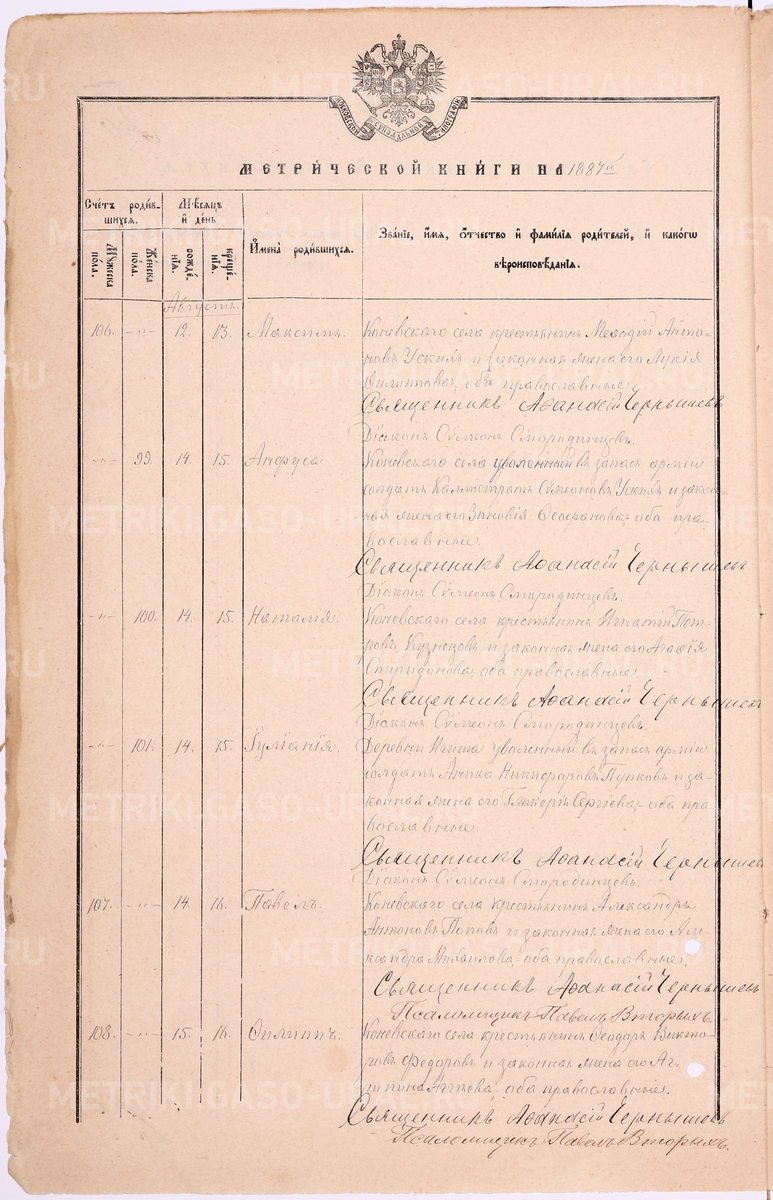 МОСКОВСКОЙ СѴНОДАЛЬНОЙ ТИПОГРАФІИ
МЕТРИ́ЧЕСКОЙ КНИ́ГИ НА 1887й
Сче́тъ роди́в-
шихся.
Мѣ́сяцъ
и де́нь
Имена̀ роди́вшихся.
Зва́ніе, и́мя, о́тчество и фами́лія роди́телей, и како́гѡ
вѣроисповѣ́данія.
Мꙋ́жеска
по́ла.
Же́нска
по́ла.
рожде́-
нія.
креще́-
нія.
Августъ.
106. -"- 12. 13. Максимъ. Коневскаго села крестьянинъ Меѳодій Анто-
новъ Ускихъ и законная жена его Лукія
Филиппова, оба православные.
Священникъ Аѳанасій Чернышевъ
Діаконъ Сѵмеонъ Смородинцевъ.
-"- 99. 14. 15. Анфуса Коневскаго села уволенный въ запасъ арміи
солдатъ Каллистратъ Сѵмеоновъ Ускихъ и закон-
ная жена его Зиновія Ѳеофанова, оба пра-
вославные.
Священникъ Аѳанасій Чернышевъ
Діаконъ Сѵмеонъ Смородинцевъ.
-"- 100. 14. 15. Наталія. Коневскаго села крестьянинъ Игнатій Пет-
ровъ Кузнецовъ и законная жена его Агаѳія
Спиридонова, оба православные.
Священникъ Аѳанасій Чернышевъ
Діаконъ Сѵмеонъ Смородинцевъ.
-"- 101. 14. 15. Іуліанія. Деревни уволенный въ запасъ арміи
солдатъ Аника Никифоровъ Пупковъ и за-
конная жена его Гликерія Сергіева, оба пра
вославные.
Священникъ Аѳанасій Чернышевъ
Діаконъ Сѵмеонъ Смородинцевъ.
107. -"- 14. 16. Павелъ. Коневскаго села крестьянинъ Александръ
Антоновъ Поповъ и законная жена его Але-
ксандра Михаилова, оба православные.
Священникъ Аѳанасій Чернышевъ
Псаломщикъ Павелъ Вторыхъ.
108. -"- 15. 16. Филиппъ. Коневскаго села крестьянинъ Ѳеодоръ Викто-
ровъ Федоровъ и законная жена его Аг-
Аггѣева, оба православные.
Священникъ Аѳанасій Чернышевъ
Псаломщикъ Павелъ Вторыхъ.
METRIKI.GASO-URAL.RU